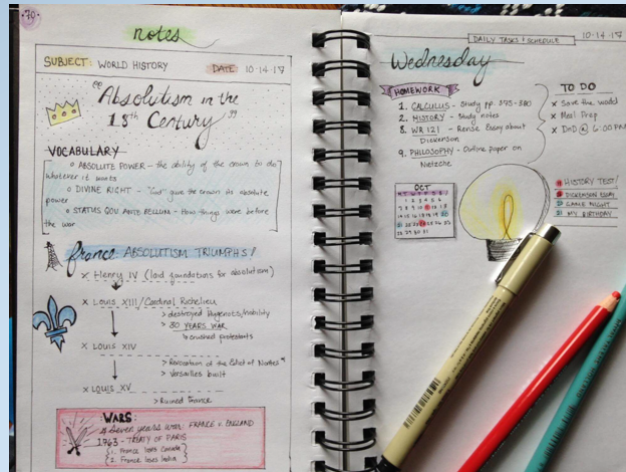 70
notes
SUBJECT: WORLD HISTORY DATE 10-14-17
"Absolutism in the
18th Century"
VOCABULARY
ABSOLUTE POWER - the ability of the crown to do
whatever it wants
DIVINE RIGHT - "God" gave the crown its absolute
power
STATUS QUO - How things were before
the war
france ABSOLUTISM TRIUMPHS!
x Henry IV (laid foundations for absolutism)
x Louis XIII/Cardinal Richelieu
> destroyed Hugenots/Nobility
> 30 YEARS WAR
> crushed protestants
x LOUIS XIV
> Revocation of the Edict of Nantes
> Versailles built
x LOUIS XV
> Ruined France
WARS:
Seven years war: FRANCE v. ENGLAND
1763 - TREATY OF PARIS
1. France loses Canada
2. France loses India
DAILY TASKS & SCHEDULE 10-14-17
Wednesday
HOMEWORK
1. CALCULUS - Study pp.
2. HISTORY - Study notes
3. WR 121 - Revise Essay about
Dickenson
9. PHILOSOPHY - Outline paper on
Nietzche
TO DO
x Save the world
x Meal Prep
x DND @ 6:00 PM
OCT
HISTORY TEST!
DICKENSON ESSAY
GAME NIGHT
MY BIRTHDAY